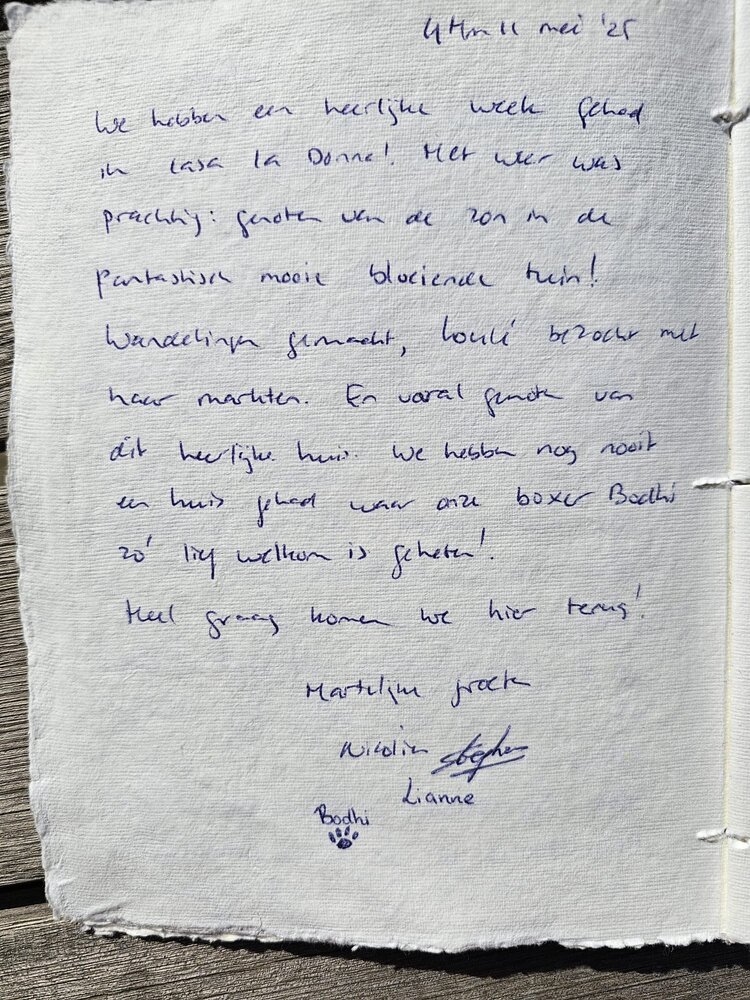 4 t/m 11 mei '25
We hebben een heerlijke week gehad
in casa la Donna! Het weer was
prachtig: genoten van de zon in de
fantastisch mooie bloeiende tuin!
Wandelingen gemaakt, Loulé bezocht met
haar markten. En vooral genoten van
dit heerlijke huis. We hebben nog nooit
een huis gehad waar onze boxer Bodhi
zó lief welkom is geheten!
Heel graag komen we hier terug!
Hartelijke groeten
Nicolien Stephen
Lianne
Bodhi